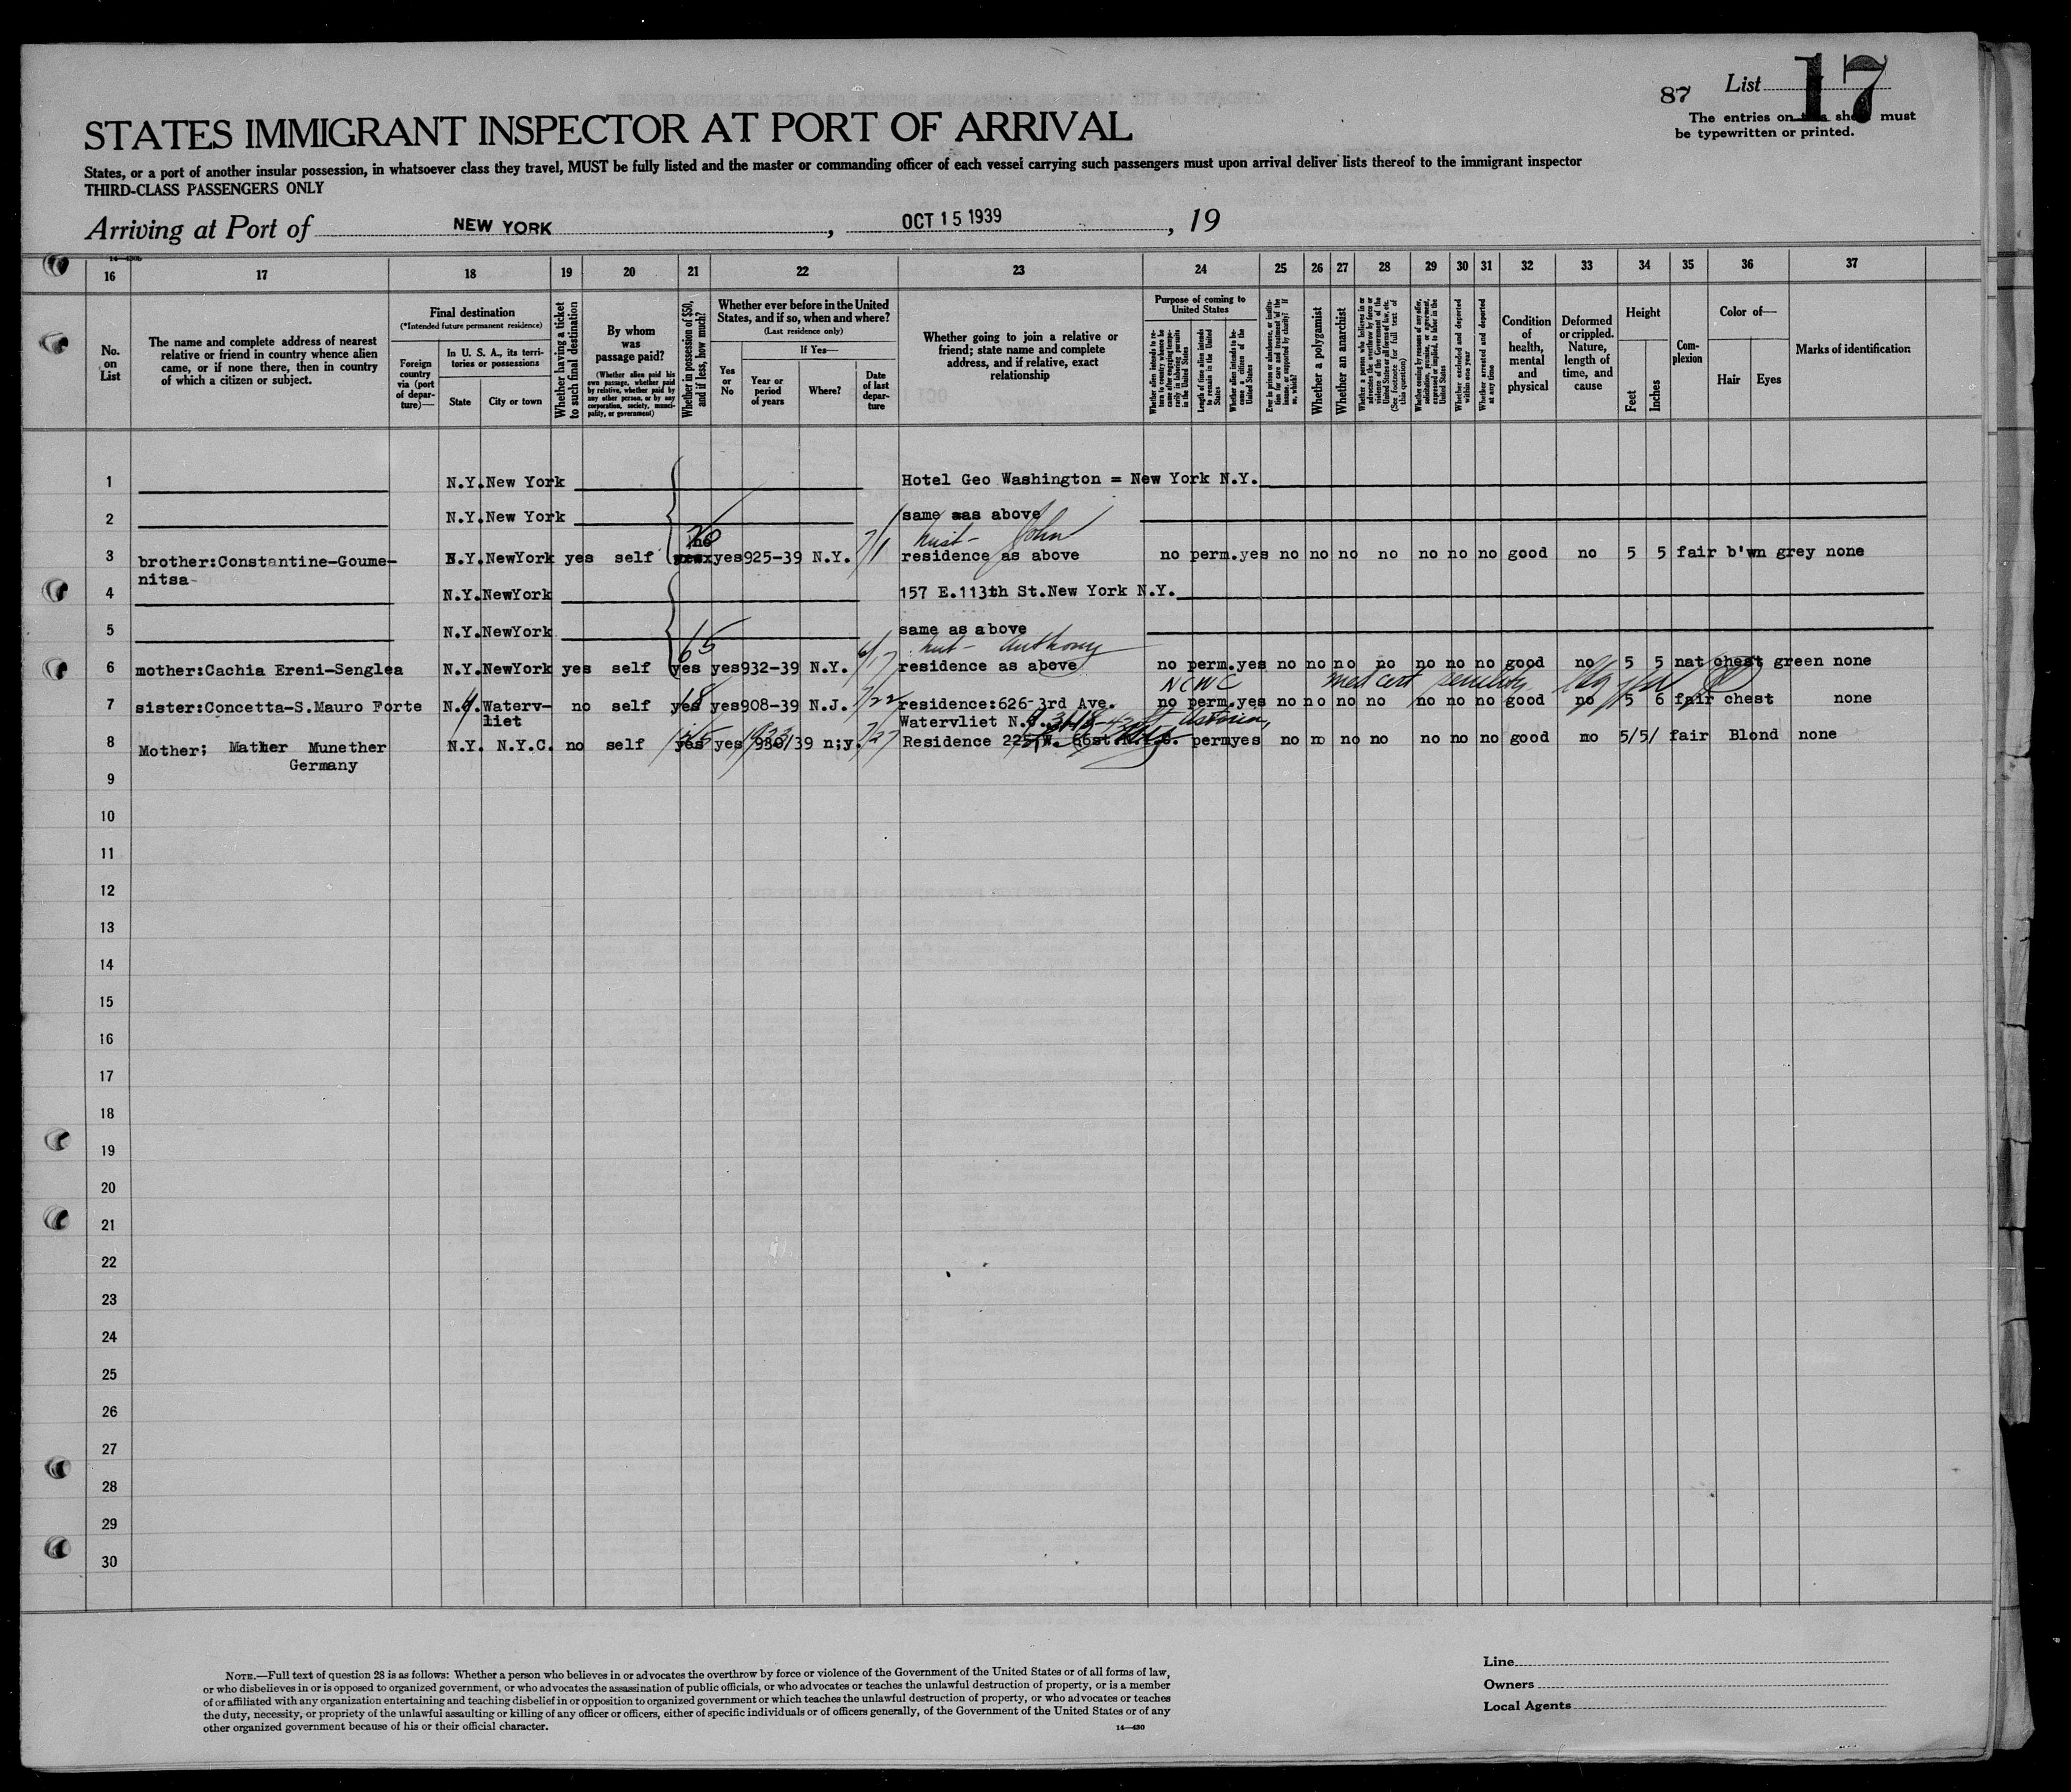 87 List 17
The entries on this sheet must
be typewritten or printed.
STATES IMMIGRANT INSPECTOR AT PORT OF ARRIVAL
States, or a port of another insular possession, in whatsoever class they travel, MUST be fully listed and the master or commanding officer of each vessel carrying such passengers must upon arrival deliver lists thereof to the immigrant inspector
THIRD-CLASS PASSENGERS ONLY
Arriving at Port of NEW YORK, OCT 15 1939, 19
16 17 18 19 20 21 22 23 24 25 26 27 28 29 30 31 32 33 34 35 36 37
No. on List
The name and complete address of nearest relative or friend in country whence alien came, or if none there, then in country of which a citizen or subject.
Final destination
(*Intended future permanent residence)
Foreign country via (port of departure)—
In U. S. A., its territories or possessions
State City or town
Whether having a ticket to such final destination
By whom was passage paid?
(Whether alien paid his own passage, whether paid by relative, whether paid by any other person, or by any corporation, society, municipality, or government)
Whether in possession of $50, and if less, how much?
Whether ever before in the United States, and if so, when and where?
(Last residence only)
If Yes—
Yes or No
Year or period of years
Where?
Date of last departure
Whether going to join a relative or friend; state name and complete address, and if relative, exact relationship
Purpose of coming to United States
Length of time alien intends to remain in the United States
Whether alien intends to become a citizen of the United States
Whether a polygamist
Whether an anarchist
Whether excluded and deported within one year
Whether arrested and deported at any time
Condition of health, mental and physical
Deformed or crippled. Nature, length of time, and cause
Height
Feet Inches
Complexion
Color of—
Hair Eyes
Marks of identification
1 N.Y. New York Hotel Geo Washington = New York N.Y.
2 N.Y. New York same as above
John
3 brother:Constantine-Goume- N.Y. NewYork yes self no yes 925-39 N.Y. 7/1 residence as above no perm. yes no no no no no no no good no 5 5 fair b'wn grey none
nitsa
4 N.Y. NewYork 157 E.113th St.New York N.Y.
5 N.Y. NewYork same as above
65 Anthony
6 mother:Cachia Ereni-Senglea N.Y. NewYork yes self yes yes 932-39 N.Y. 6/17 residence as above no perm. yes no no no no no no no good no 5 5 nat chest green none
NCWC med cert senility
7 sister:Concetta-S.Mauro Forte N.Y. Waterv- no self yes yes 908-39 N.J. 7/22 residence:626-3rd Ave. no perm. yes no no no no no no no good no 5 6 fair chest none
liet Watervliet N.Y. Astoria,
8 Mother; Mather Munether N.Y. N.Y.C. no self yes yes 930/39 n;y. 7/27 Residence perm yes no no no no no no good mo 5/5/ fair Blond none
Germany
9
10
11
12
13
14
15
16
17
18
19
20
21
22
23
24
25
26
27
28
29
30
NOTE.—Full text of question 28 is as follows: Whether a person who believes in or advocates the overthrow by force or violence of the Government of the United States or of all forms of law,
or who disbelieves in or is opposed to organized government, or who advocates the assassination of public officials, or who advocates or teaches the unlawful destruction of property, or is a member
of or affiliated with any organization entertaining and teaching disbelief in or opposition to organized government or which teaches the unlawful destruction of property, or who advocates or teaches
the duty, necessity, or propriety of the unlawful assaulting or killing of any officer or officers, either of specific individuals or of officers generally, of the Government of the United States or of any
other organized government because of his or their official character.
14—430
Line
Owners
Local Agents